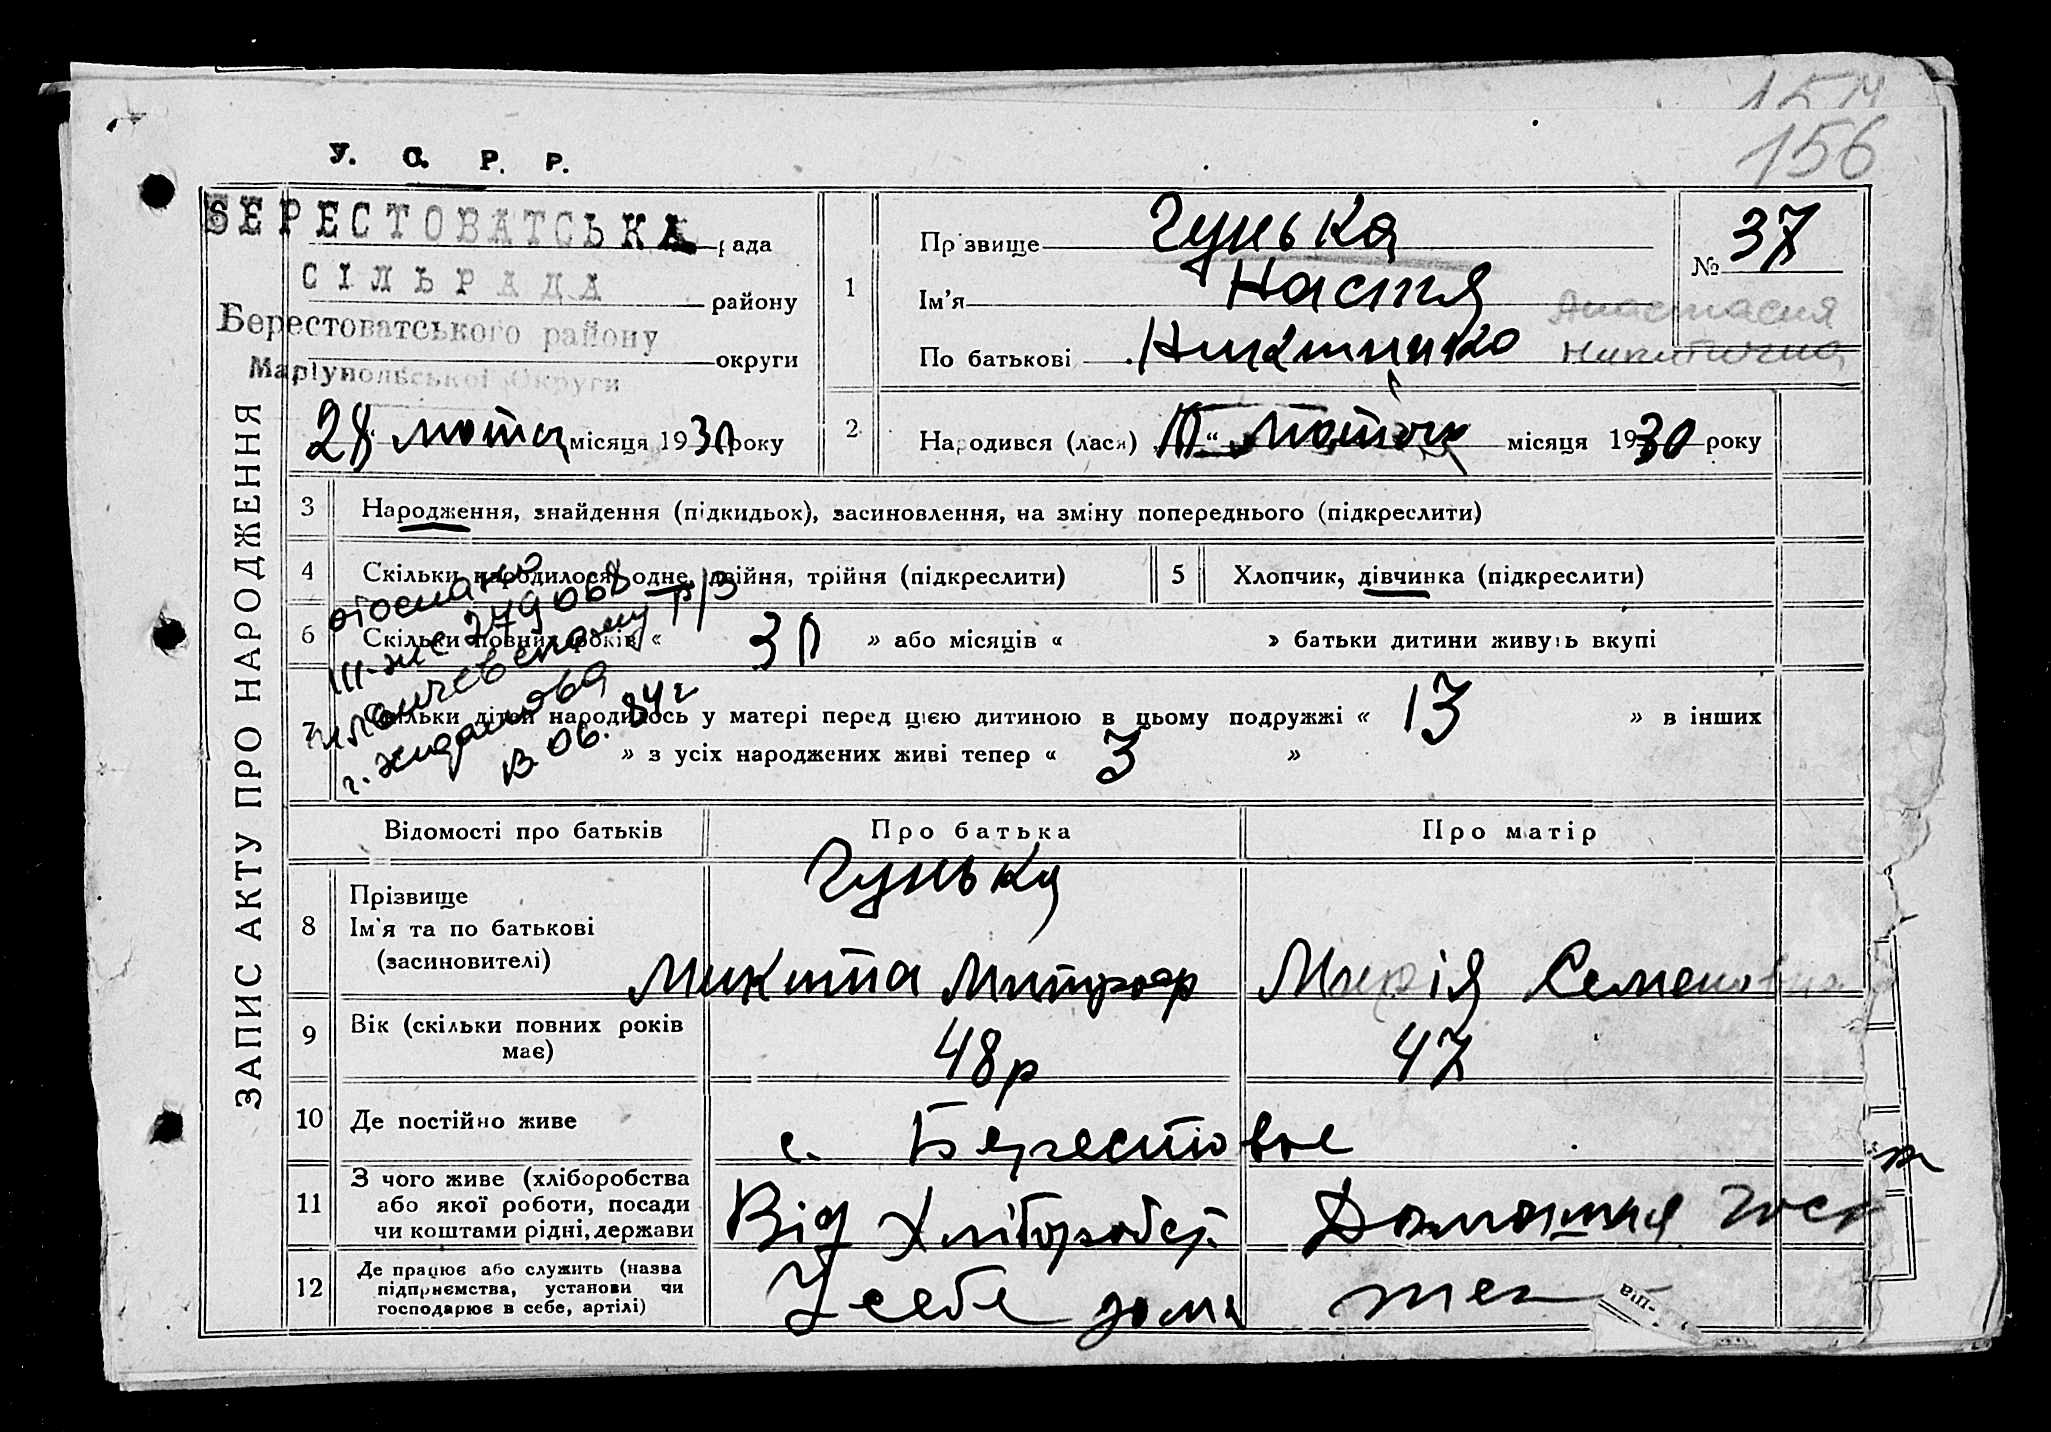 156
У. С. Р. Р.
БЕРЕСТОВАТСЬКА рада
СІЛЬРАДА району
Берестоватського району
округи
Маріупольської Округи
28 лютня місяця 1930 року
ЗАПИС АКТУ ПРО НАРОДЖЕННЯ
1 Прізвище Гунька
№ 37
Ім'я Настя Анастасия
По батькові Никитична
2 Народився (лася) 10 " лютого місяця 1930 року
3 Народження, знайдення (підкидьок), засиновлення, на зміну попереднього (підкреслити)
4 Скільки народилося: одне, двійня, трійня (підкреслити)
5 Хлопчик, дівчинка (підкреслити)
6 Скільки повних років « 30 » або місяців « » батьки дитини живуть вкупі
7 Скільки дітей народилось у матері перед цією дитиною в цьому подружжі « 13 » в інших
» з усіх народжених живі тепер « 3 »
III-жс 279068
г. Жданова
13.06.84г
Відомості про батьків Про батька Про матір
8 Прізвище
Ім'я та по батькові
(засиновителі)
Гунька
Микита Митроф Марія Семеновна
9 Вік (скільки повних років має) 48р 47
10 Де постійно живе с. Берестовое
11 З чого живе (хліборобства
або якої роботи, посади
чи коштами рідні, держави
Від Хлібороб Домашня гос
12 Де працює або служить (назва
підприємства, установи чи
господарює в себе, артілі)
У себе дома теж